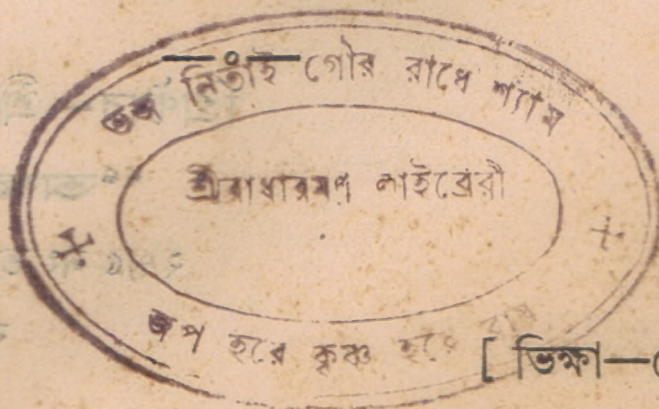 ভজ নিতাই গৌর রাধে শ্যাম
শ্রীরাধারমণ লাইব্রেরী
জপ হরে কৃষ্ণ হরে রাম
[ ভিক্ষা—